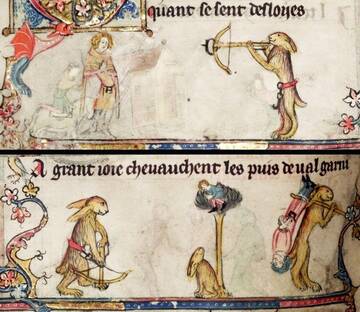 quant se sent desloijes
A grant ioie cheuauchent les puis de ual garni